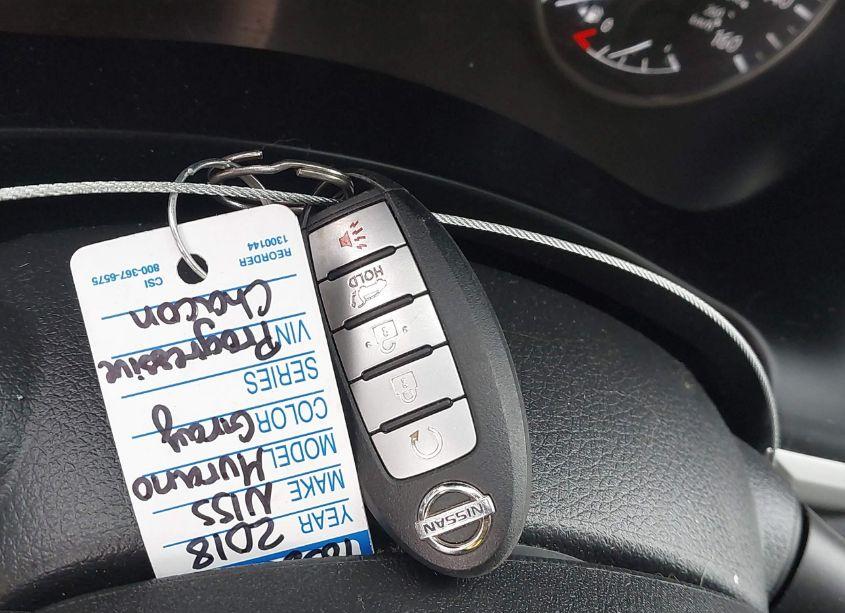 YEAR 2018
MAKE NISS
MODEL Murano
COLOR Gray
SERIES
VIN Progressive
Chacon
REORDER CSI
1300144 800-367-6575
HOLD
NISSAN
0
160
km/h